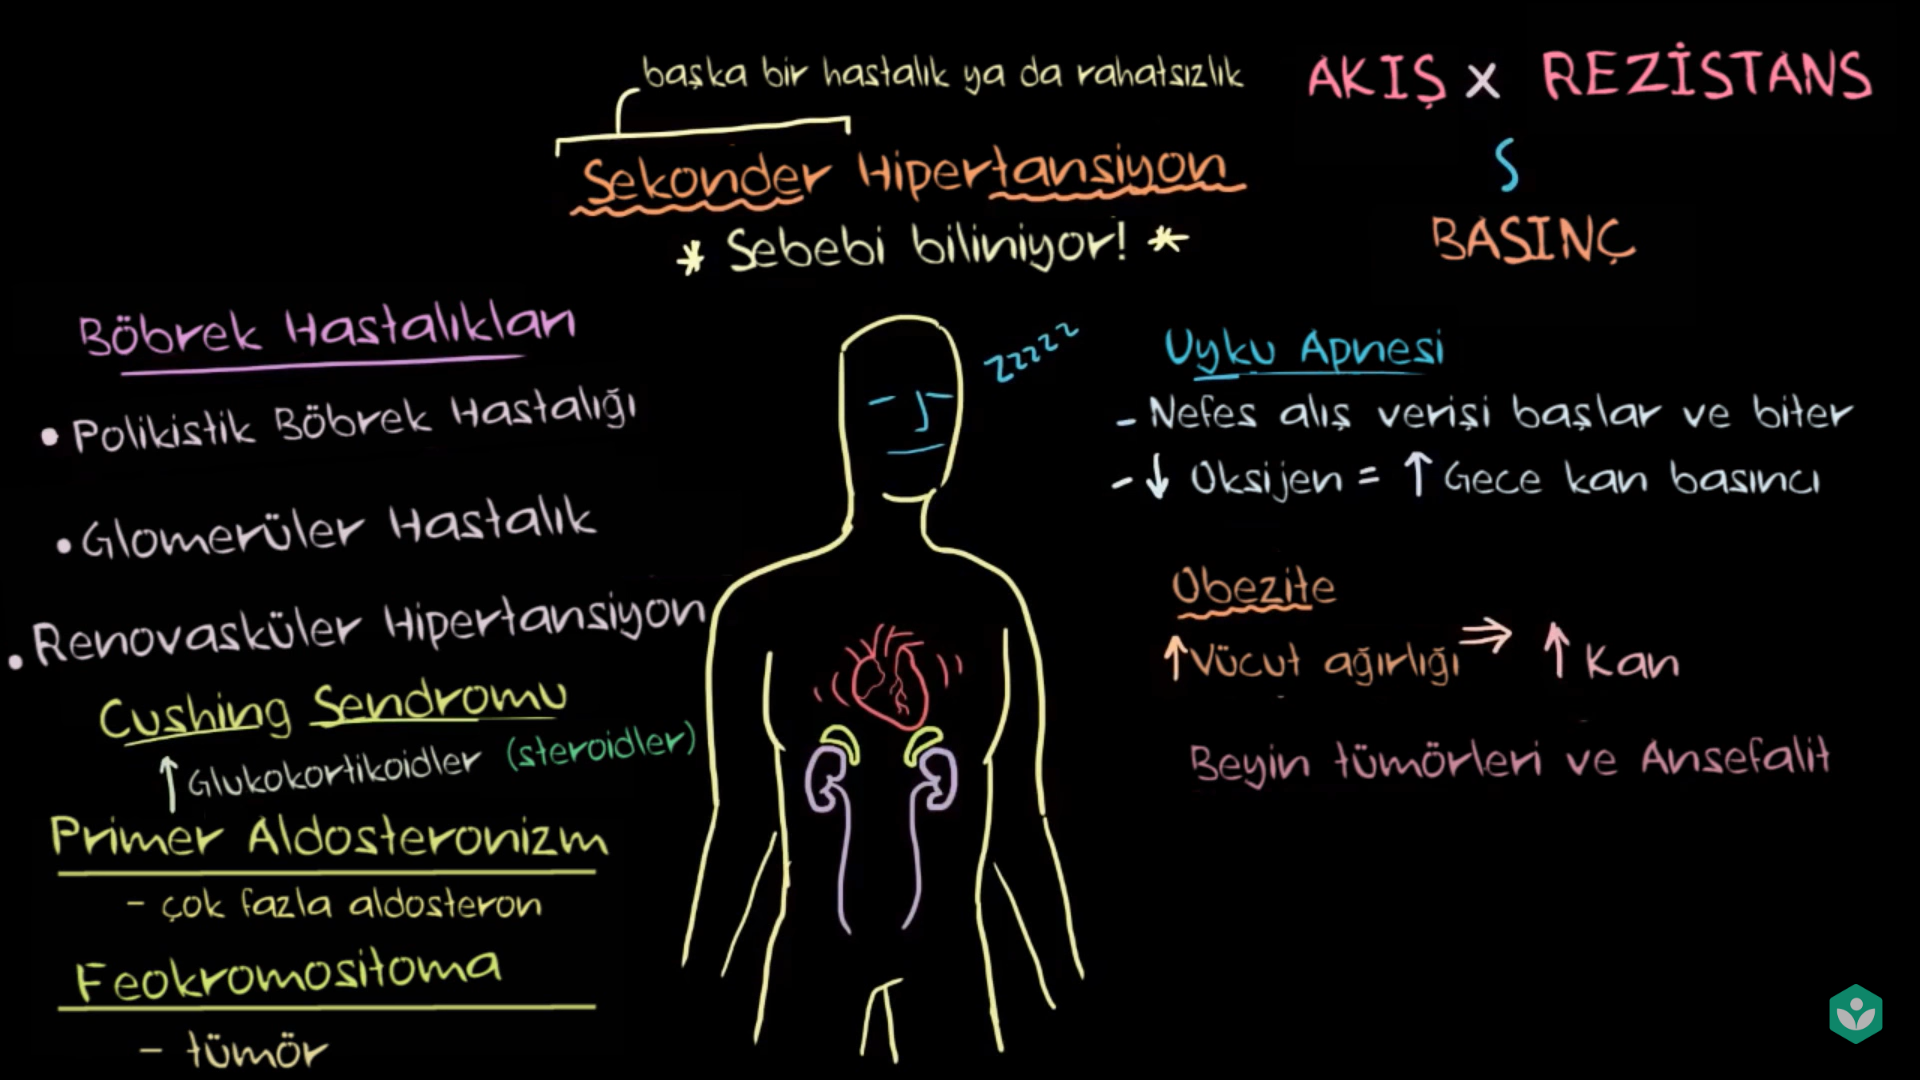 başka bir hastalık ya da rahatsızlık
AKIŞ x REZİSTANS
S
BASINÇ
Sekonder Hipertansiyon
* Sebebi biliniyor! *
Böbrek Hastalıkları
• Polikistik Böbrek Hastalığı
• Glomerüler Hastalık
• Renovasküler Hipertansiyon
Cushing Sendromu
↑ Glukokortikoidler (steroidler)
Primer Aldosteronizm
- çok fazla aldosteron
Feokromositoma
- tümör
zzzzz
Uyku Apnesi
- Nefes alış verişi başlar ve biter
- ↓ Oksijen = ↑ Gece kan basıncı
Obezite
↑ Vücut ağırlığı ⇒ ↑ Kan
Beyin tümörleri ve Ansefalit